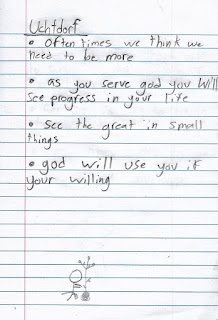 Uchtdorf
• Often times we think we
need to be more
• as you serve god you will
see progress in your life
• see the great in small
things
• god will use you if
your willing